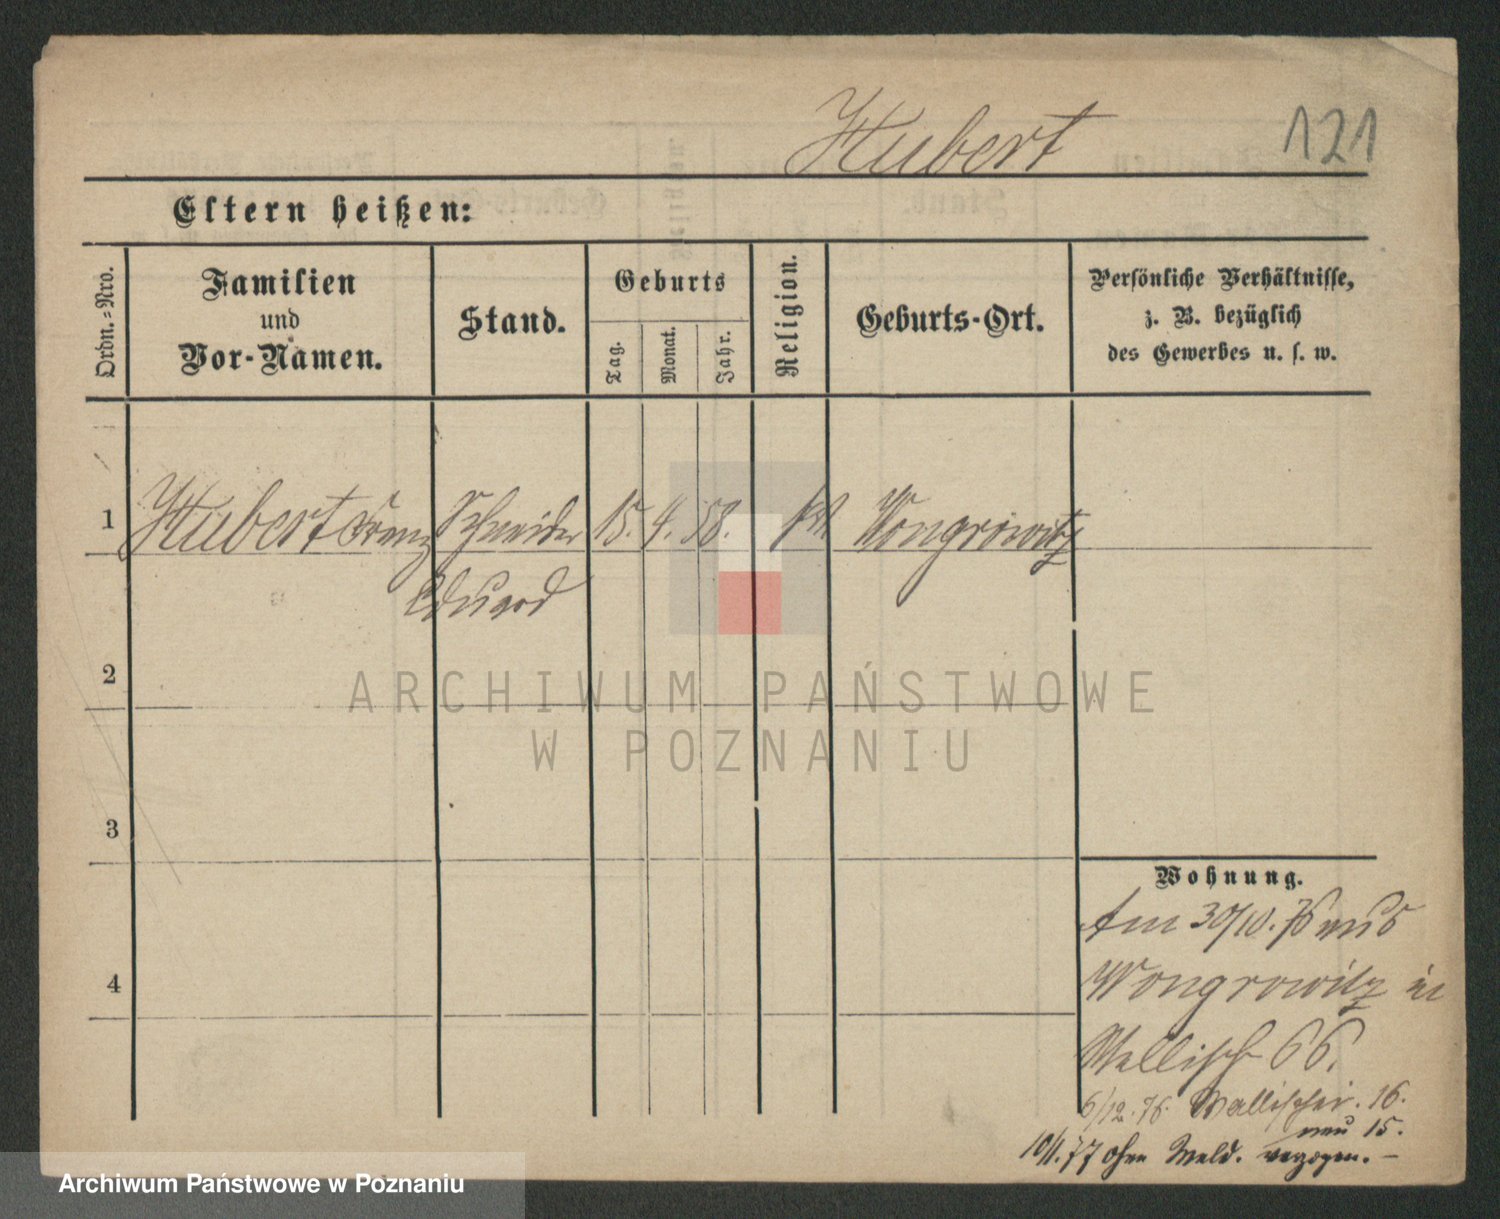 Hubert
121
Eltern heißen:
Ordn.-Nro.
Familien
und
Vor-Namen.
Stand.
Geburts
Tag.
Monat.
Jahr.
Religion.
Geburts-Ort.
Persönliche Verhältnisse,
z. B. bezüglich
des Gewerbes u. s. w.
1
Hubert Franz Schneider 15. 4. 58. kth Wongrowitz
Eduard
2
3
4
Wohnung.
Am 30/10. 76 aus
Wongrowitz in
Wallisch 66.
6/12. 76. Wallischei. 16.
neu 15.
10/1. 77 ohne Meld. verzogen. –
ARCHIWUM PAŃSTWOWE
W POZNANIU
Archiwum Państwowe w Poznaniu